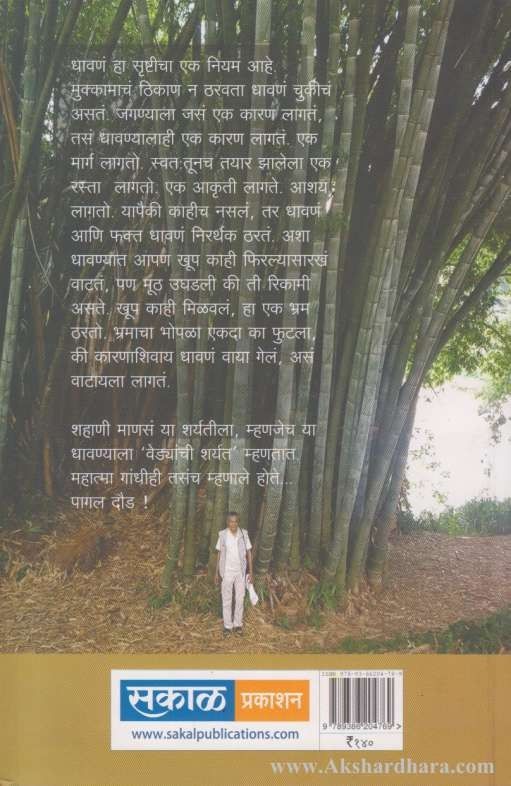 धावणं हा सृष्टीचा एक नियम आहे.
मुक्कामाचं ठिकाण न ठरवता धावणं चुकीचं
असतं. जगण्याला जसं एक कारण लागतं,
तसं धावण्यालाही एक कारण लागतं. एक
मार्ग लागतो. स्वतःतूनच तयार झालेला एक
रस्ता लागतो. एक आकृती लागते. आशय
लागतो. यापैकी काहीच नसलं, तर धावणं
आणि फक्त धावणं निरर्थक ठरतं. अशा
धावण्यात आपण खूप काही फिरल्यासारखं
वाटतं, पण मूठ उघडली की ती रिकामी
असते. खूप काही मिळवलं, हा एक भ्रम
ठरतो. भ्रमाचा भोपळा एकदा का फुटला,
की कारणाशिवाय धावणं वाया गेलं, असं
वाटायला लागतं.
शहाणी माणसं या शर्यतीला, म्हणजेच या
धावण्याला ‘वेड्यांची शर्यत’ म्हणतात.
महात्मा गांधीही तसंच म्हणाले होते...
पागल दौड !
सकाळ प्रकाशन
www.sakalpublications.com
ISBN 978-93-86204-76-9
9 789386 204769
₹१४०
www.Akshardhara.com